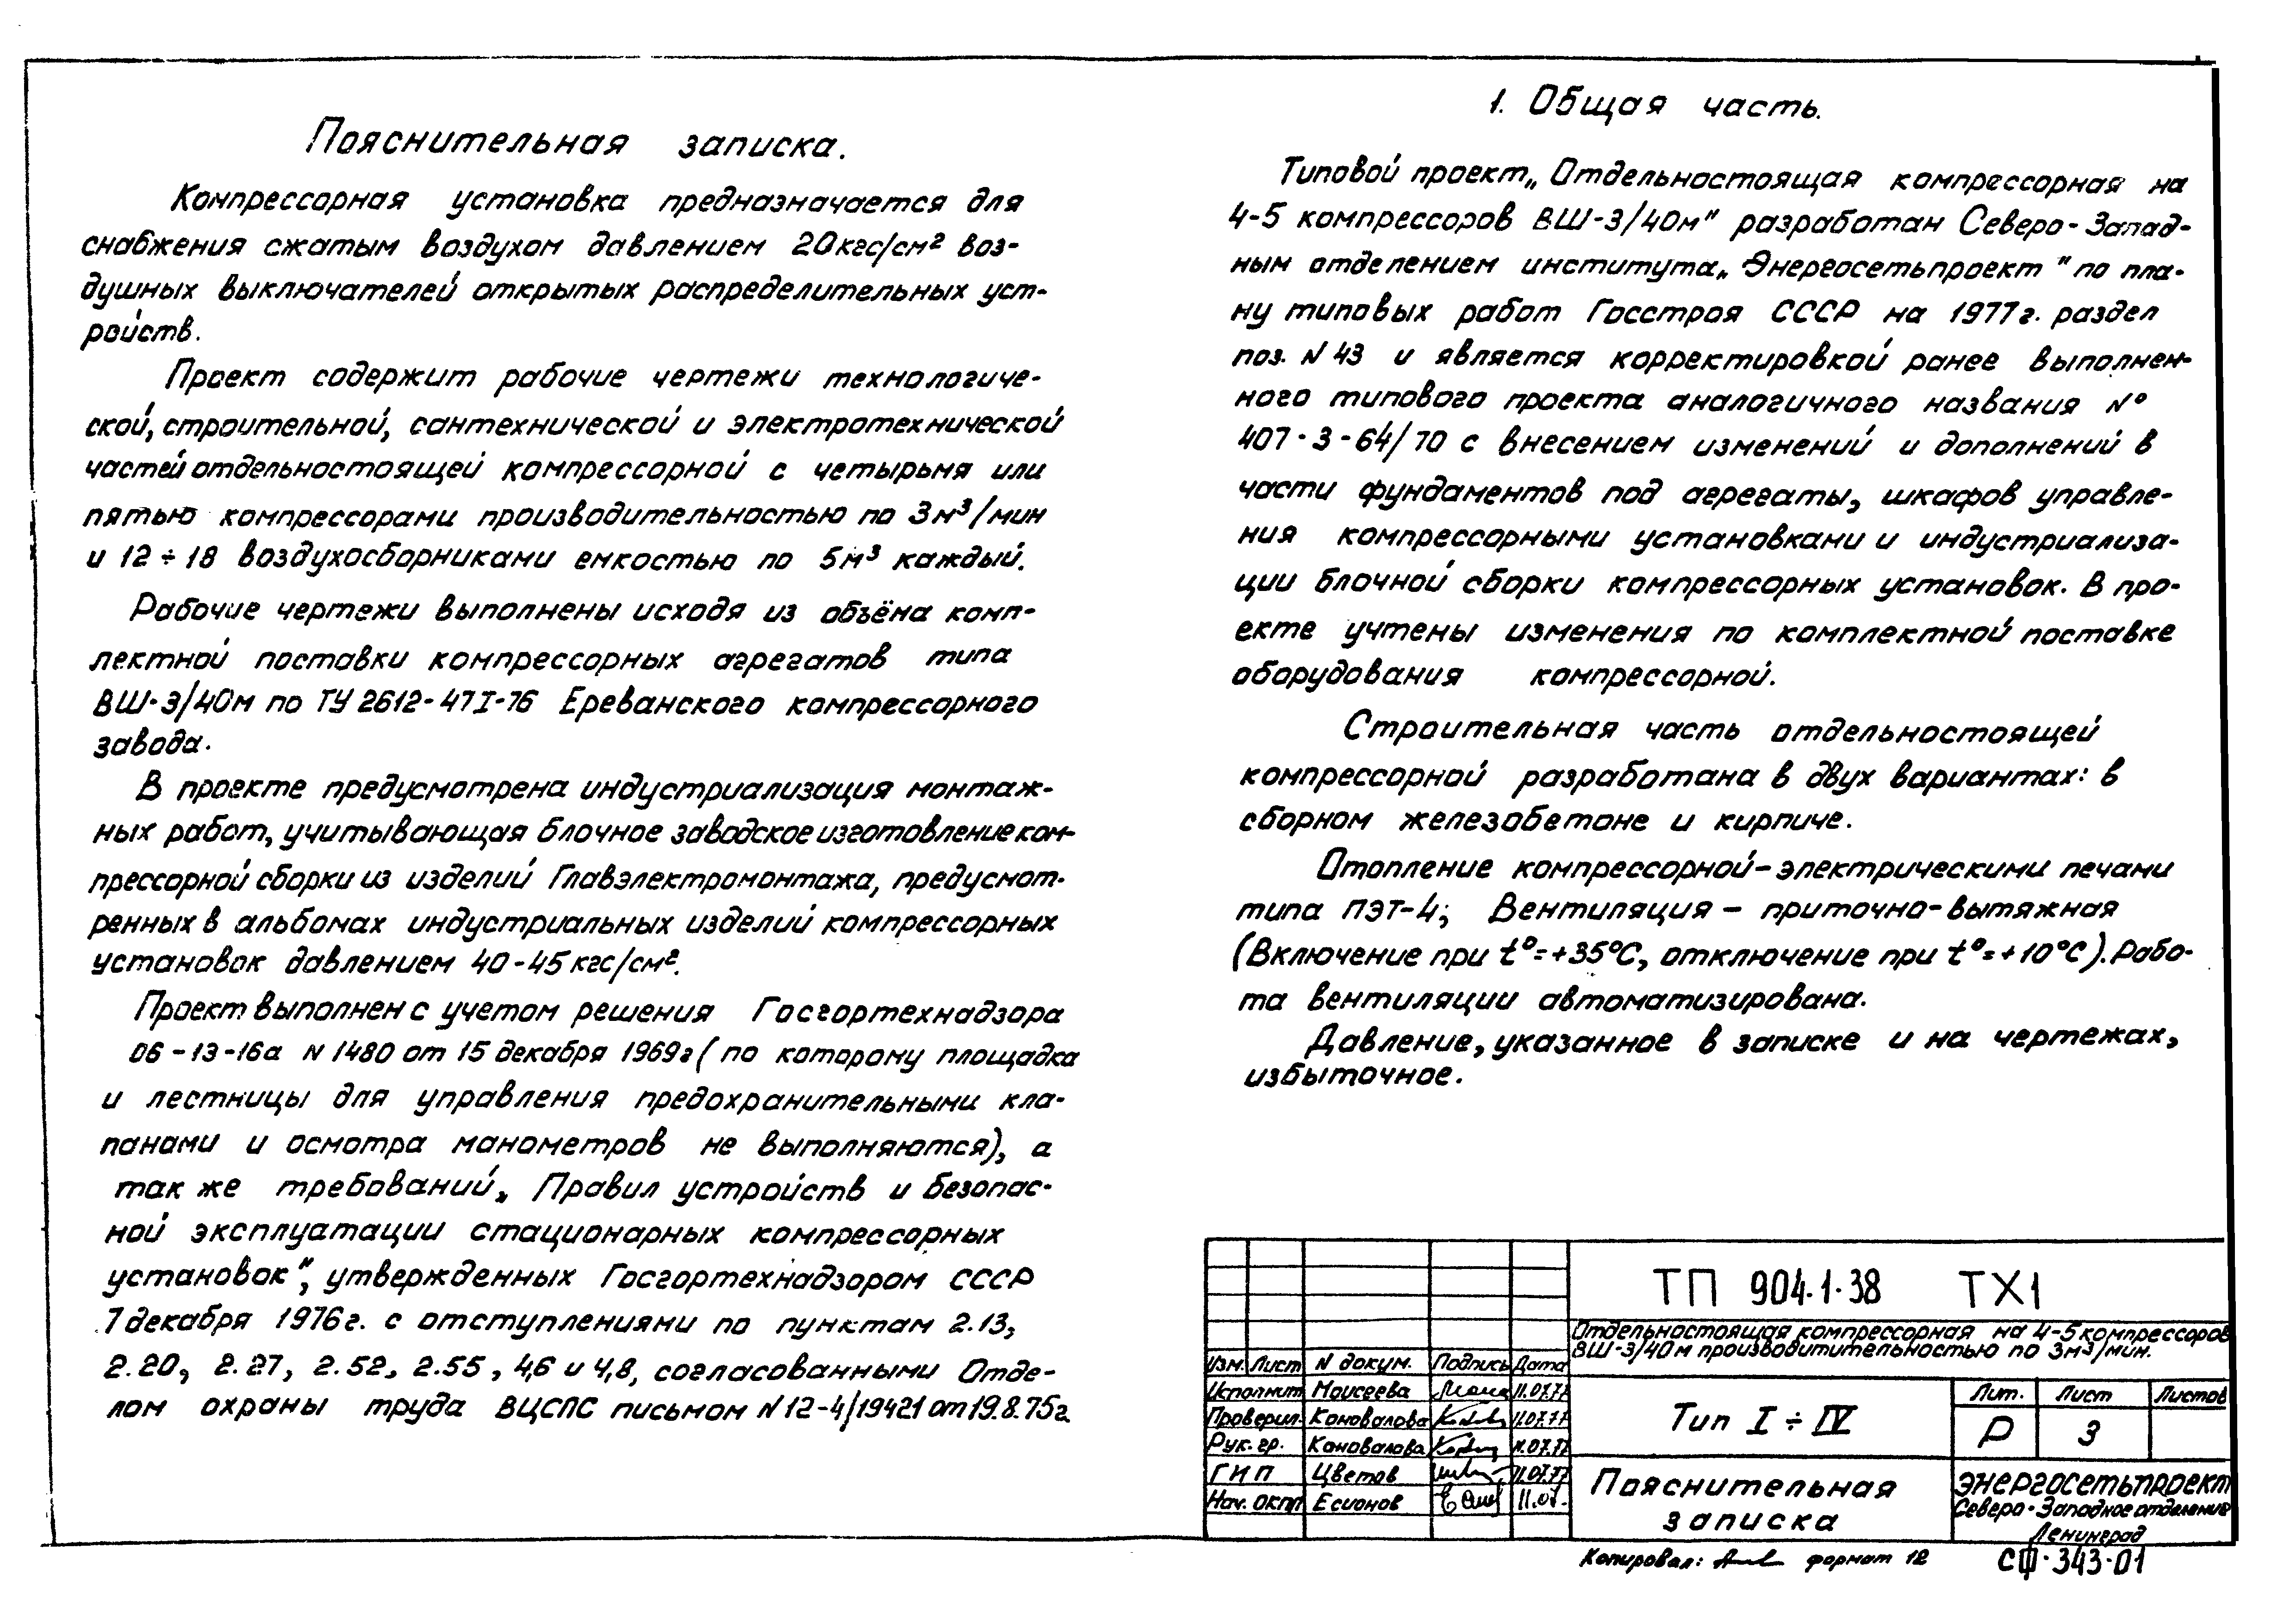 Пояснительная записка.
Компрессорная установка предназначается для
снабжения сжатым воздухом давлением 20кгс/см² воз-
душных выключателей открытых распределительных уст-
ройств.
Проект содержит рабочие чертежи технологиче-
ской, строительной, сантехнической и электротехнической
частей отдельностоящей компрессорной с четырьмя или
пятью компрессорами производительностью по 3м³/мин
и 12÷18 воздухосборниками емкостью по 5м³ каждый.
Рабочие чертежи выполнены исходя из объёма комп-
лектной поставки компрессорных агрегатов типа
ВШ-3/40м по ТУ 2612-47I-76 Ереванского компрессорного
завода.
В проекте предусмотрена индустриализация монтаж-
ных работ, учитывающая блочное заводское изготовление ком-
прессорной сборки из изделий Главэлектромонтажа, предусмот-
ренных в альбомах индустриальных изделий компрессорных
установок давлением 40-45кгс/см².
Проект выполнен с учетом решения Госгортехнадзора
06-13-16а N 1480 от 15 декабря 1969г (по которому площадка
и лестницы для управления предохранительными кла-
панами и осмотра манометров не выполняются), а
так же требований „Правил устройств и безопас-
ной эксплуатации стационарных компрессорных
установок", утвержденных Госгортехнадзором СССР
7 декабря 1976г. с отступлениями по пунктам 2.13,
2.20, 2.27, 2.52, 2.55, 4,6 и 4,8, согласованными Отде-
лом охраны труда ВЦСПС письмом N 12-4/19421 от 19.8.75г.
1. Общая часть.
Типовой проект „Отдельностоящая компрессорная на
4-5 компрессоров ВШ-3/40м" разработан Северо-Запад-
ным отделением института „Энергосетьпроект" по пла-
ну типовых работ Госстроя СССР на 1977г. раздел
поз. N 43 и является корректировкой ранее выполнен-
ного типового проекта аналогичного названия №
407-3-64/70 с внесением изменений и дополнений в
части фундаментов под агрегаты, шкафов управле-
ния компрессорными установками и индустриализа-
ции блочной сборки компрессорных установок. В про-
екте учтены изменения по комплектной поставке
оборудования компрессорной.
Строительная часть отдельностоящей
компрессорной разработана в двух вариантах: в
сборном железобетоне и кирпиче.
Отопление компрессорной-электрическими печами
типа ПЭТ-4; Вентиляция - приточно-вытяжная
(Включение при t°=+35°С, отключение при t°=+10°С). Рабо-
та вентиляции автоматизирована.
Давление, указанное в записке и на чертежах,
избыточное.
ТП 904-1-38 ТХ1
Отдельностоящая компрессорная на 4-5 компрессоров
ВШ-3/40м производитительностью по 3м³/мин.
Изм. Лист N докум. Подпись Дата
Исполнит Моисеева 11.07.77
Проверил Коновалова 11.07.77
Рук. гр. Коновалова 11.07.77
ГИП Цветов 11.07.77
Нач. ОКПП Есионов 11.07.
Тип I ÷ IV
Лит. Лист Листов
Р 3
Пояснительная
записка
ЭНЕРГОСЕТЬПРОЕКТ
Северо-Западное отделение
Ленинград
Копировал: формат 12
СФ-343-01